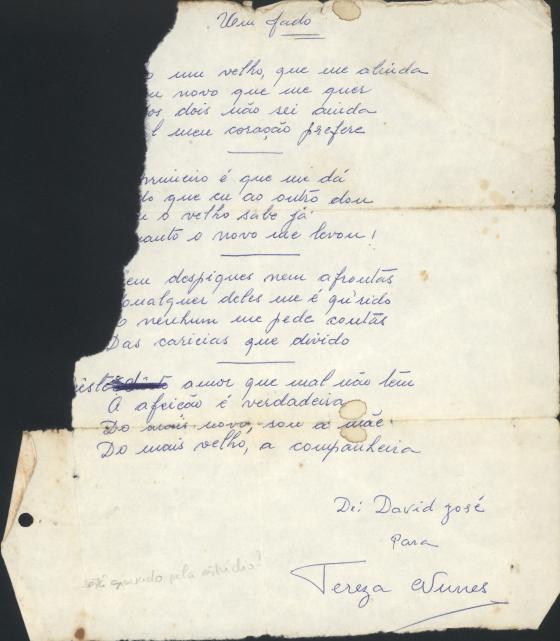 Vem fado
um velho, que me alinda
novo que me quer
dois não sei ainda
meu coração prefere
primeiro é que me dá
que eu ao outro dou
o velho sabe já
quanto o novo me levou!
Nem despiques nem afrontas
Qualquer deles me é qu'rido
E nenhum me pede contas
Das caricias que divido
amor que mal não tem
A afeição é verdadeira
Do mais novo, sou a mãe
Do mais velho, a companheira
De: David José
Para
Tereza Nunes
pela